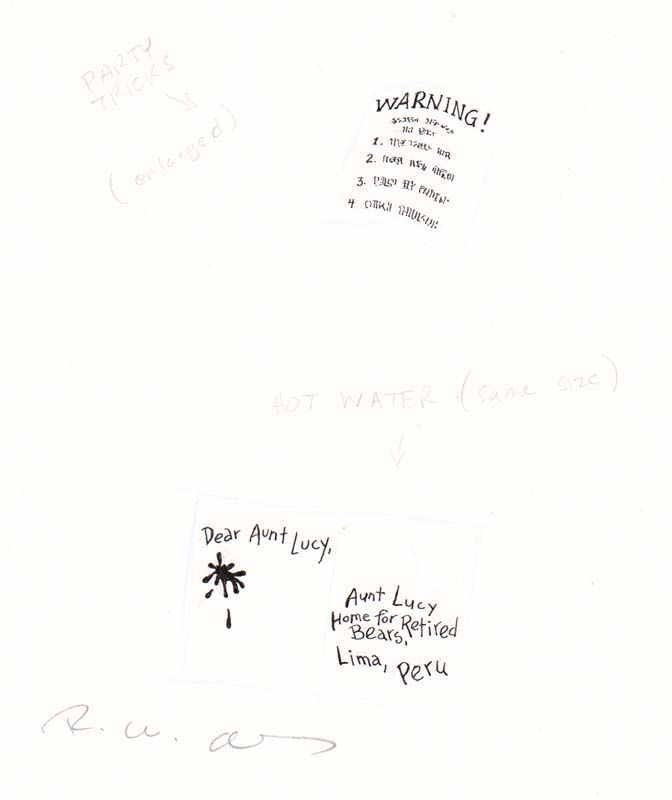 PARTY
TRICKS
(enlarged)
WARNING!
1.
2.
3.
4
HOT WATER (same size)
Dear Aunt Lucy,
Aunt Lucy
Home for Retired
Bears,
Lima, Peru
R. W.